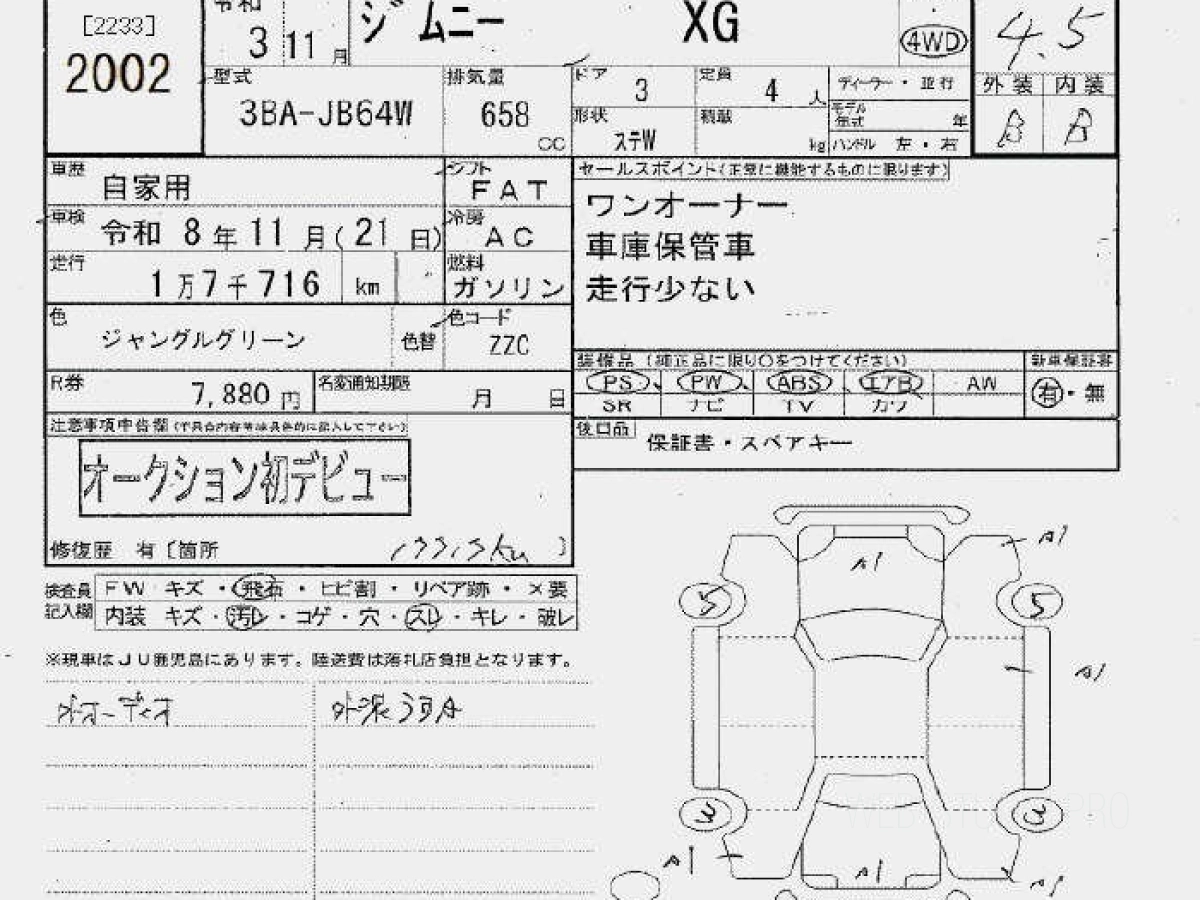 [2233]
2002
令和
3 11 月
ジムニー XG
4WD
4.5
外装 内装
B B
型式
3BA-JB64W
排気量
658
CC
ドア
3
定員
4 人
ディーラー・並行
モデル年式 年
形状
ステW
積載
kg
ハンドル 左・右
車歴
自家用
シフト
FAT
セールスポイント(正常に機能するものに限ります)
ワンオーナー
車庫保管車
走行少ない
車検
令和 8年11月(21日)
冷房
AC
走行
1万7千716 km
燃料
ガソリン
色
ジャングルグリーン
色替
色コード
ZZC
装備品 (純正品に限り○をつけてください)
新車保証書
PS PW ABS エアB AW
有・無
SR ナビ TV カワ
R券
7,880 円
名変通知期限
月 日
後日品
保証書・スペアキー
注意事項申告欄
オークション初デビュー
修復歴 有〔箇所 〕
検査員記入欄
FW キズ・飛石・ヒビ割・リペア跡・×要
内装 キズ・汚レ・コゲ・穴・スレ・キレ・破レ
※現車はJU鹿児島にあります。陸送費は落札店負担となります。
外オーディオ
A1
A1
5 5
A1
3 3
A1
A1
A1